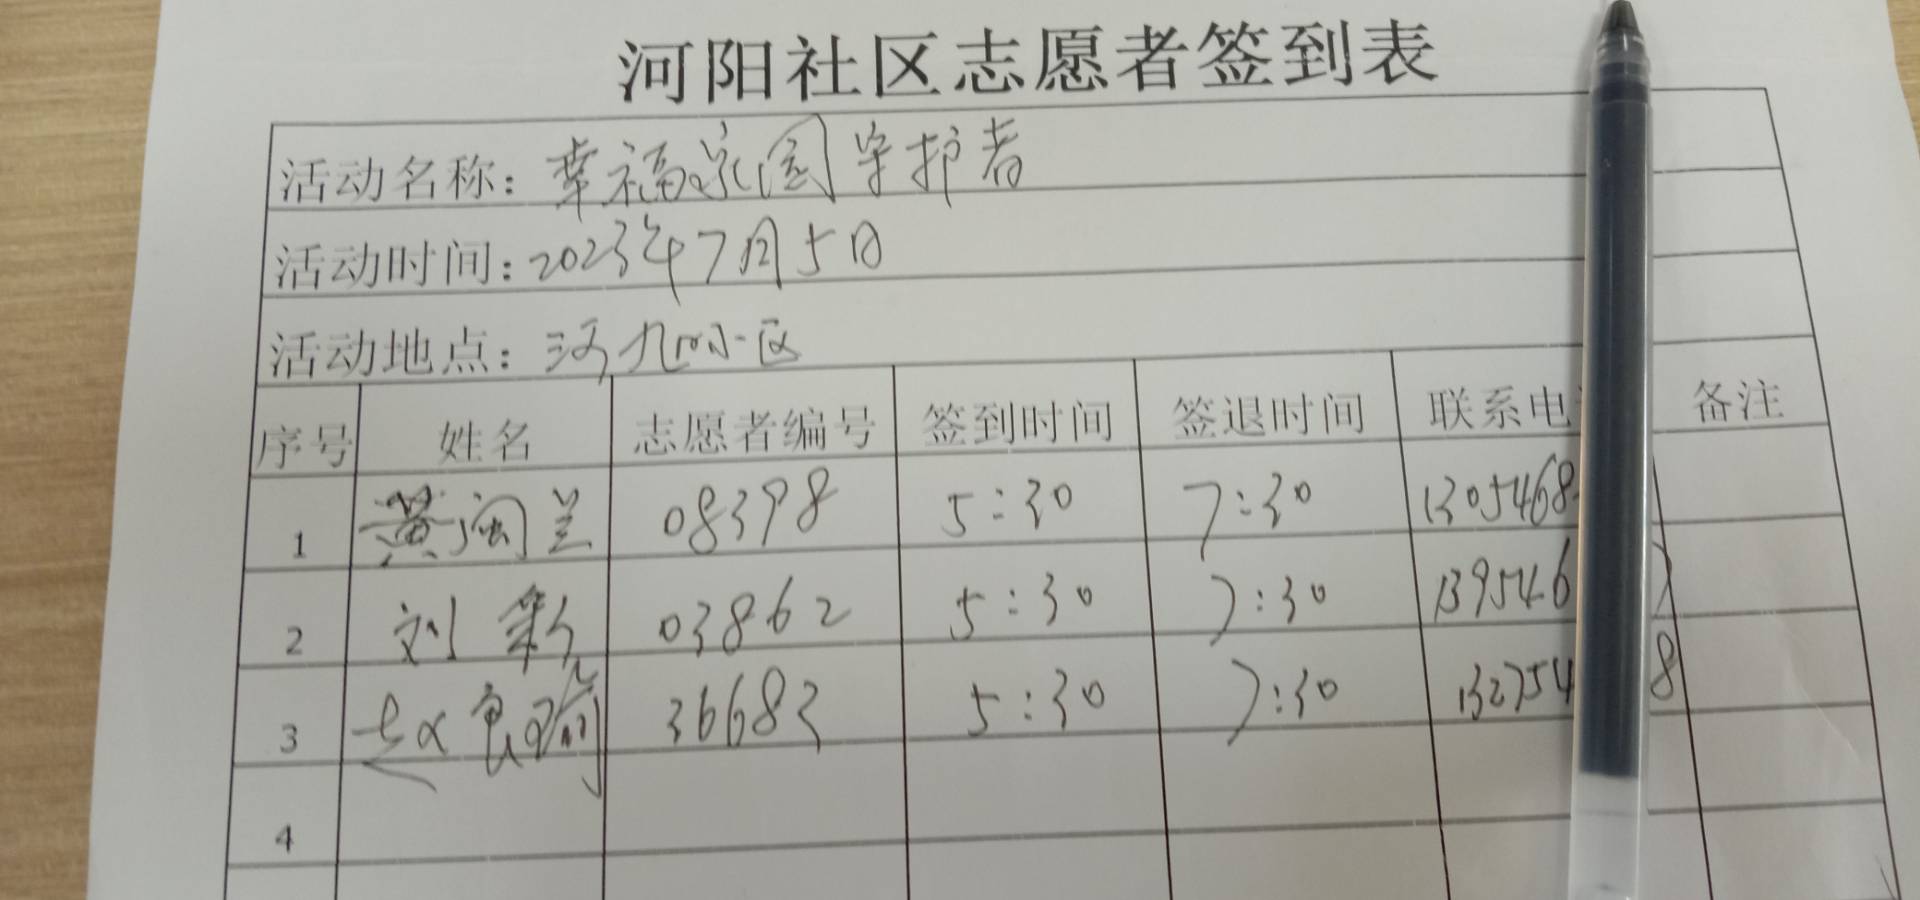 河阳社区志愿者签到表
活动名称：幸福家园守护者
活动时间：2023年7月5日
活动地点：河九小区
序号 姓名 志愿者编号 签到时间 签退时间 联系电 备注
1 黄闽兰 08398 5:30 7:30 1305468
2 刘彩 03862 5:30 7:30 139546
3 赵良瑜 36682 5:30 7:30 132754 8
4